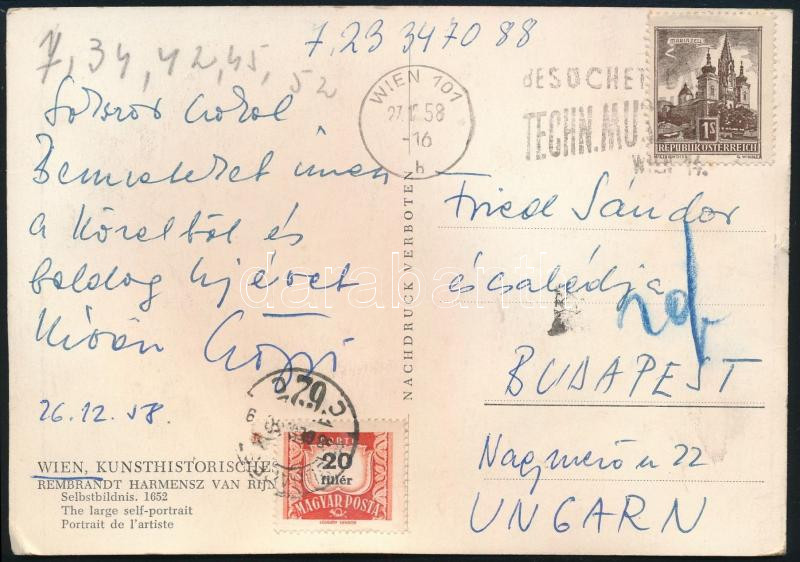 7,23 34 70 88
7, 34, 42, 45, 52
WIEN 101
27.12.58
-16
h
BESUCHET D
TECHN.MUS
WIEN 14.
MARIAZELL
1S
REPUBLIK ÖSTERREICH
Sándor
Bemeneket innen
a közelből és
boldog Újévet
Kíván
26.12.58.
NACHDRUCK VERBOTEN
Fried Sándor
és családja
BUDAPEST
Nagymező u 22
UNGARN
darabanth
PORTO
20
fillér
MAGYAR POSTA
WIEN, KUNSTHISTORISCHES
REMBRANDT HARMENSZ VAN RIJN
Selbstbildnis. 1652
The large self-portrait
Portrait de l'artiste